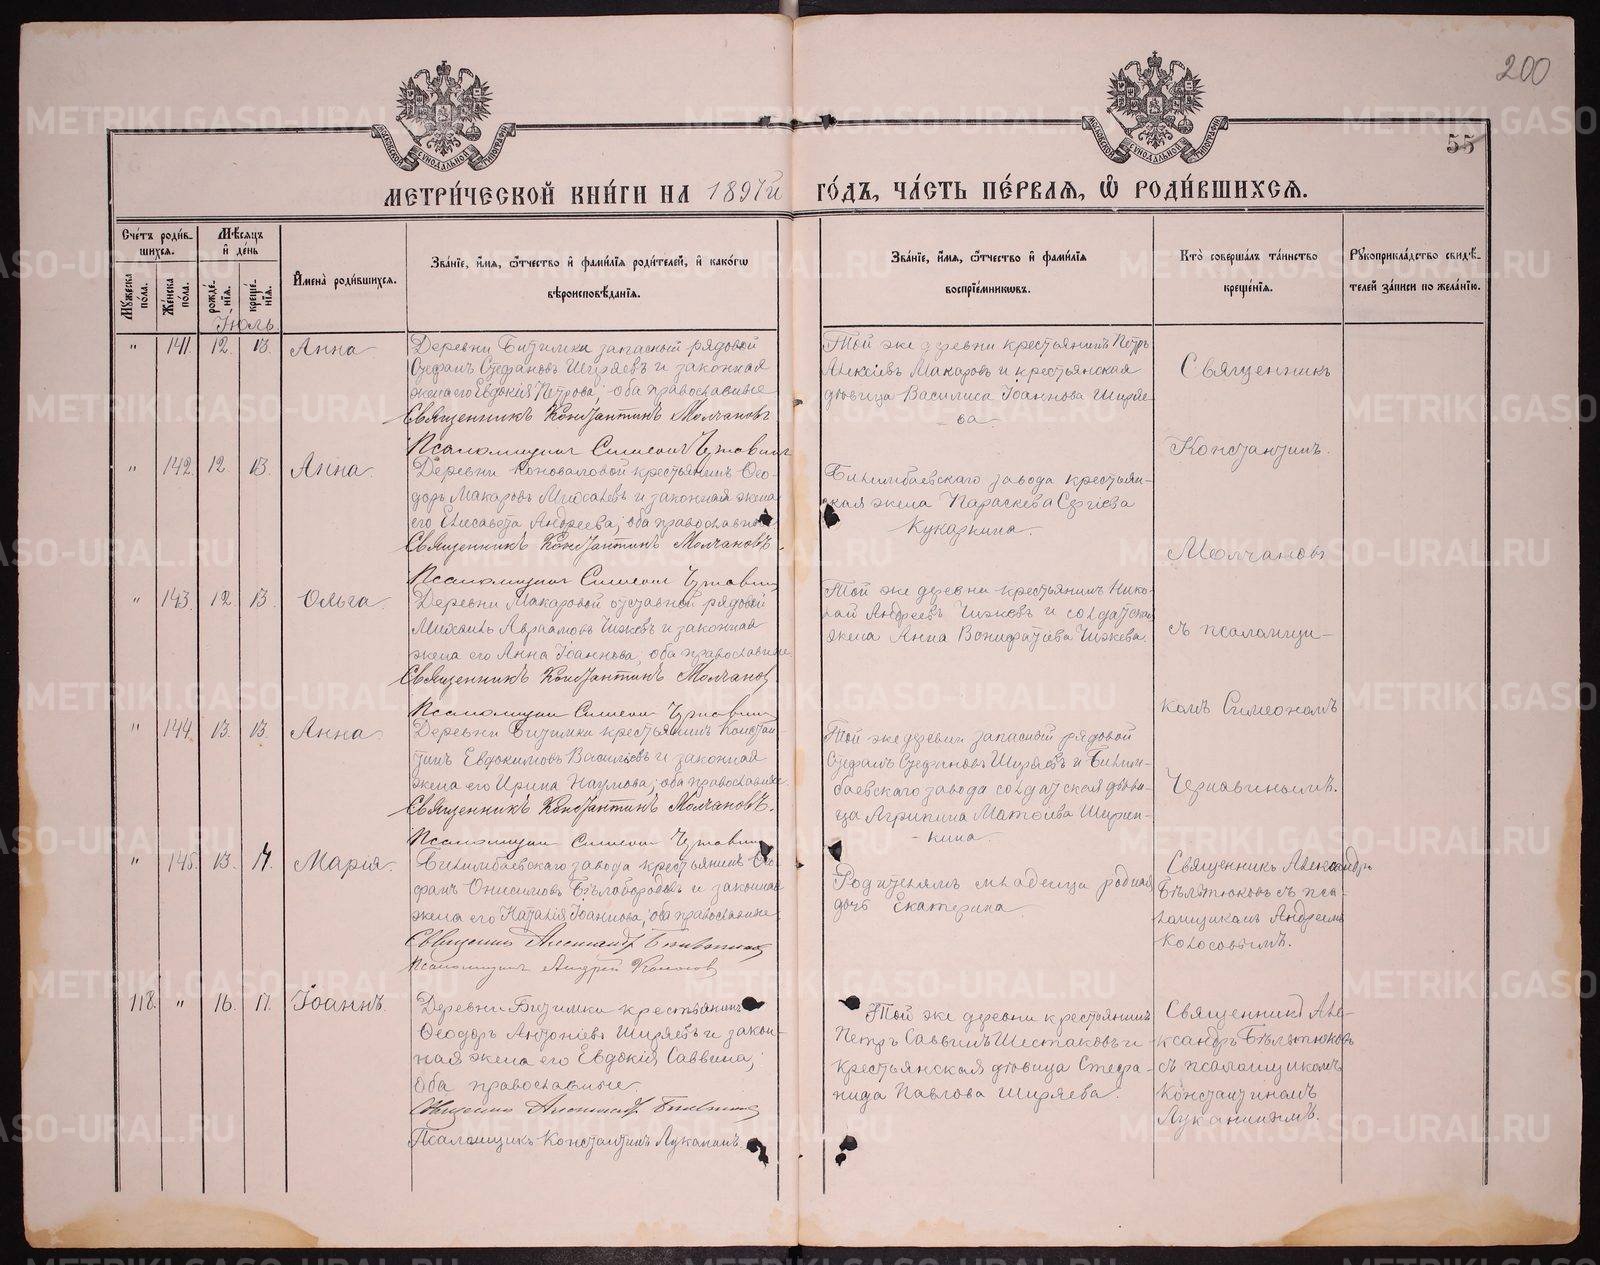 200
55
МОСКОВСКОЙ СѴНОДАЛЬНОЙ ТИПОГРАФІИ
МОСКОВСКОЙ СѴНОДАЛЬНОЙ ТИПОГРАФІИ
МЕТРИ́ЧЕСКОЙ КНИ́ГИ НА 1897й ГО́ДЪ, ЧА́СТЬ ПЕ́РВАѦ, Ѡ҆ РОДИ́ВШИХСѦ.
Сче́тъ роди́в-
шихсѧ.
Мѣ́сѧцъ
и҆ де́нь
Мꙋ́жеска
по́ла.
Же́нска
по́ла.
рожде́-
нїѧ.
креще́-
нїѧ.
И҆мена̀ роди́вшихсѧ.
Зва́нїе, и҆́мѧ, ѻ҆́тчество и҆ фами́лїѧ роди́телей, и҆ како́гѡ
вѣроисповѣ́данїѧ.
Зва́нїе, и҆́мѧ, ѻ҆́тчество и҆ фами́лїѧ
воспрїе́мникѡвъ.
Кто̀ соверша́лъ та́инство
креще́нїѧ.
Рꙋкоприкла́дство свидѣ́-
телей за́писи по жела́нїю.
Іюль
" 141. 12. 13. Анна
Деревни Битимки запасный рядовой
Стефанъ Стефановъ Ширяевъ и законная
жена его Евдокія Петрова; оба православные
Священникъ Константинъ Молчановъ
Псаломщикъ Симеонъ Чернавинъ
Той же деревни крестьянинъ Петръ
Алексіевъ Макаровъ и крестьянская
дѣвица Василиса Іоаннова Ширяе-
ва.
Священникъ
Константинъ
" 142. 12. 13. Анна
Деревни Коноваловой крестьянинъ Ѳео-
доръ Макаровъ Михалевъ и законная жена
его Елисавета Андреева; оба православные
Священникъ Константинъ Молчановъ.
Псаломщикъ Симеонъ Чернавинъ
Билимбаевскаго завода крестьян-
ская жена Параскева Сергіева
Кукаркина.
Молчановъ
" 143. 12. 13. Ольга
Деревни Макаровой отставной рядовой
Михаилъ Авраамовъ Чижевъ и законная
жена его Анна Іоаннова; оба православные
Священникъ Константинъ Молчановъ
Псаломщикъ Симеонъ Чернавинъ
Той же деревни крестьянинъ Нико-
лай Андреевъ Чижевъ и солдатская
жена Анна Вонифатіева Чижева.
съ псаломщи-
комъ Симеономъ
" 144. 13. 13. Анна
Деревни Битимки крестьянинъ Констан-
тинъ Евдокимовъ Васильевъ и законная
жена его Ирина Наумова; оба православные
Священникъ Константинъ Молчановъ.
Псаломщикъ Симеонъ Чернавинъ
Той же деревни запасный рядовой
Стефанъ Стефановъ Ширяевъ и Билим-
баевскаго завода солдатская дѣви-
ца Агрипина Матѳіева Ширин-
кина.
Чернавинымъ.
" 145. 13. 17. Марія
Билимбаевскаго завода крестьянинъ Сте-
фанъ Онисимовъ Бѣлобородовъ и законная
жена его Наталія Іоаннова; оба православные
Священникъ Александръ Бѣлътюковъ
Псаломщикъ Андрей Колосовъ
Родителямъ младенца родная
дочь Екатерина
Священникъ Александръ
Бѣлътюковъ съ пса-
ломщикомъ Андреемъ
Колосовымъ.
118. " 16. 17. Іоаннъ
Деревни Битимки крестьянинъ
Ѳеодоръ Антоніевъ Ширяевъ и закон-
ная жена его Евдокія Саввина;
оба православные
Священникъ Александръ Бѣлътюковъ
Псаломщикъ Константинъ Луканинъ.
Той же деревни крестьянинъ
Петръ Саввинъ Шестаковъ и
крестьянская дѣвица Стефа-
нида Павлова Ширяева.
Священникъ Але-
ксандръ Бѣлътюковъ
съ псаломщикомъ
Константиномъ
Луканинымъ.
METRIKI.GASO-URAL.RU